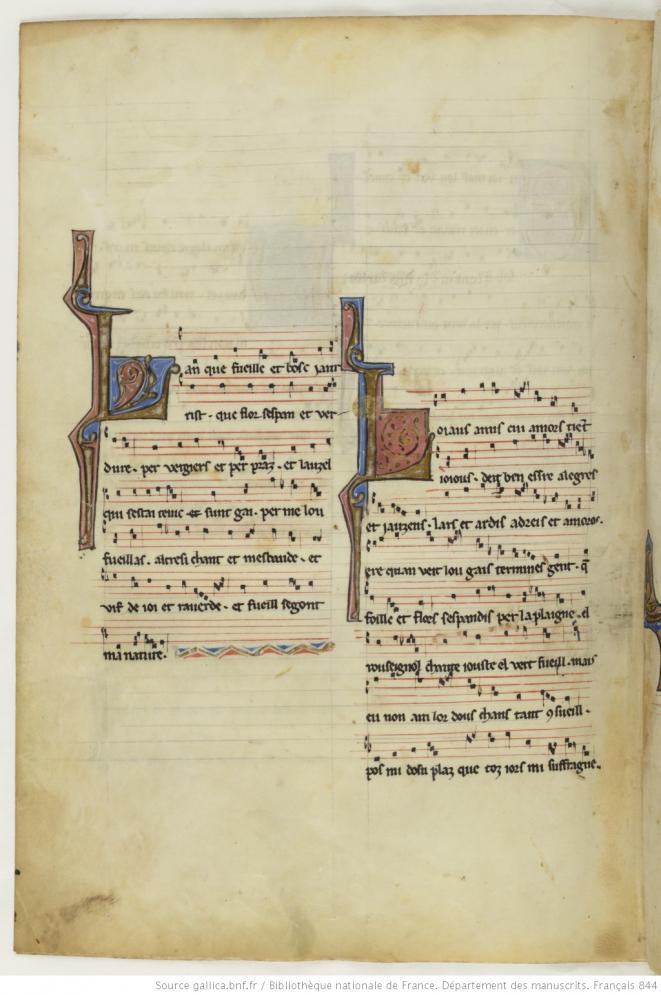 Lan que fueille et bosc jaur
rist . que flor sespan et ver
dure . per vergiers et per praz . et lauzel
qui sestai seuic et sunt gai . per me lou
fueillas . altresi chant et mesbaude . et
de ioi et rauerde . et fueill segont
ma nature .
Loiaus amis cui amors tient
ioious . deit ben estre alegres
et jauzens . lars et ardis adreis et amoros .
ere quan veit lou gais termines gent . q̄
foille et flors sespandis per la plaigne . el
rouseignol chante iouste el vert fueill . mais
eu non am lor dous chans tant 9sueill .
pos mi dosu plaz que toz iors mi suffraigne .
Source gallica.bnf.fr / Bibliothèque nationale de France. Département des manuscrits. Français 844